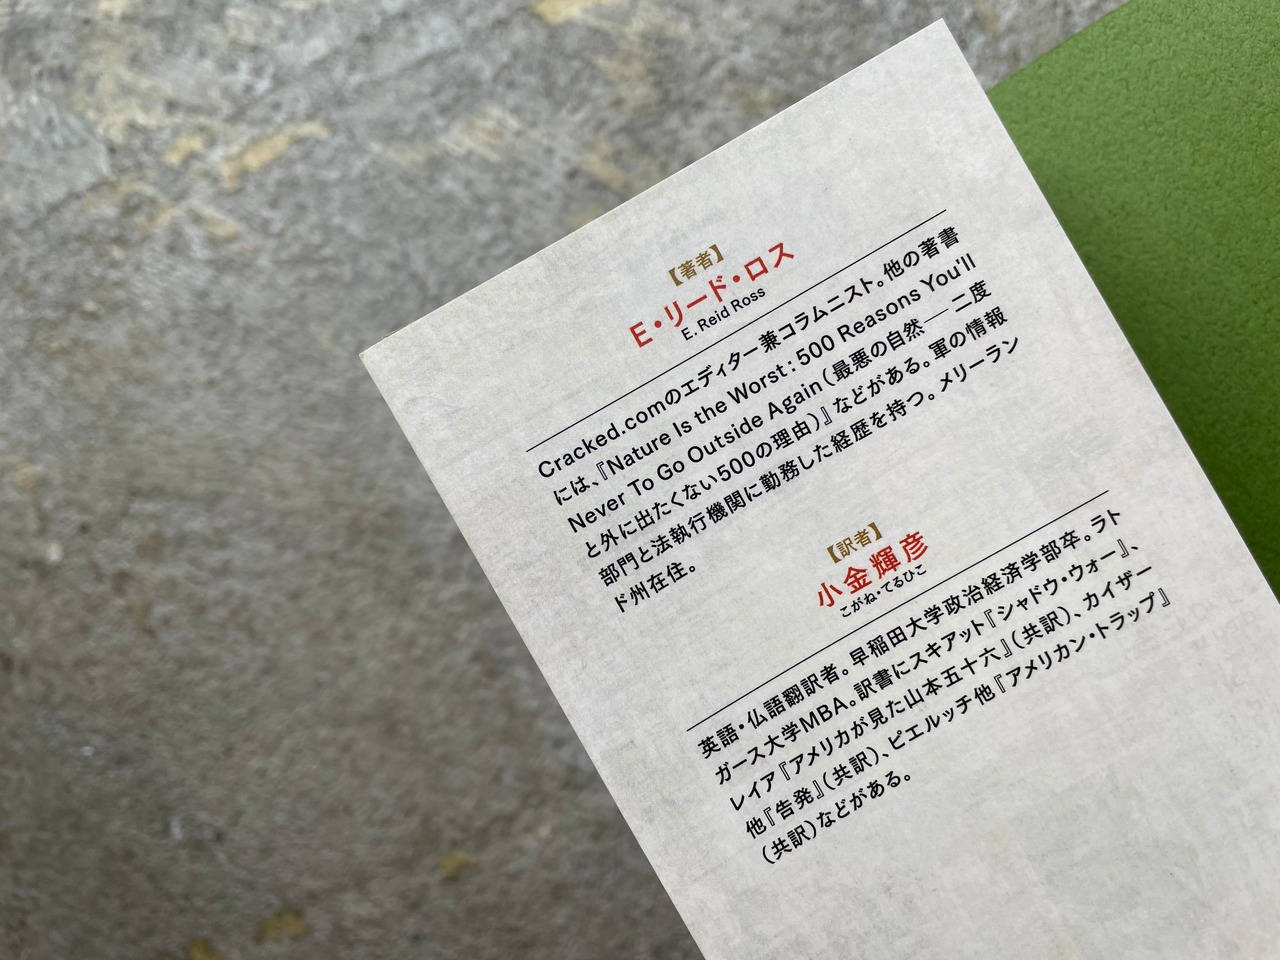 【著者】
E・リード・ロス
E. Reid Ross
Cracked.comのエディター兼コラムニスト。他の著書
には、『Nature Is the Worst : 500 Reasons You'll
Never To Go Outside Again（最悪の自然― 二度
と外に出たくない500の理由）』などがある。軍の情報
部門と法執行機関に勤務した経歴を持つ。メリーラン
ド州在住。
【訳者】
小金輝彦
こがね・てるひこ
英語・仏語翻訳者。早稲田大学政治経済学部卒。ラト
ガース大学MBA。訳書にスキアット『シャドウ・ウォー』、
レイア『アメリカが見た山本五十六』（共訳）、カイザー
他『告発』（共訳）、ピエルッチ他『アメリカン・トラップ』
（共訳）などがある。